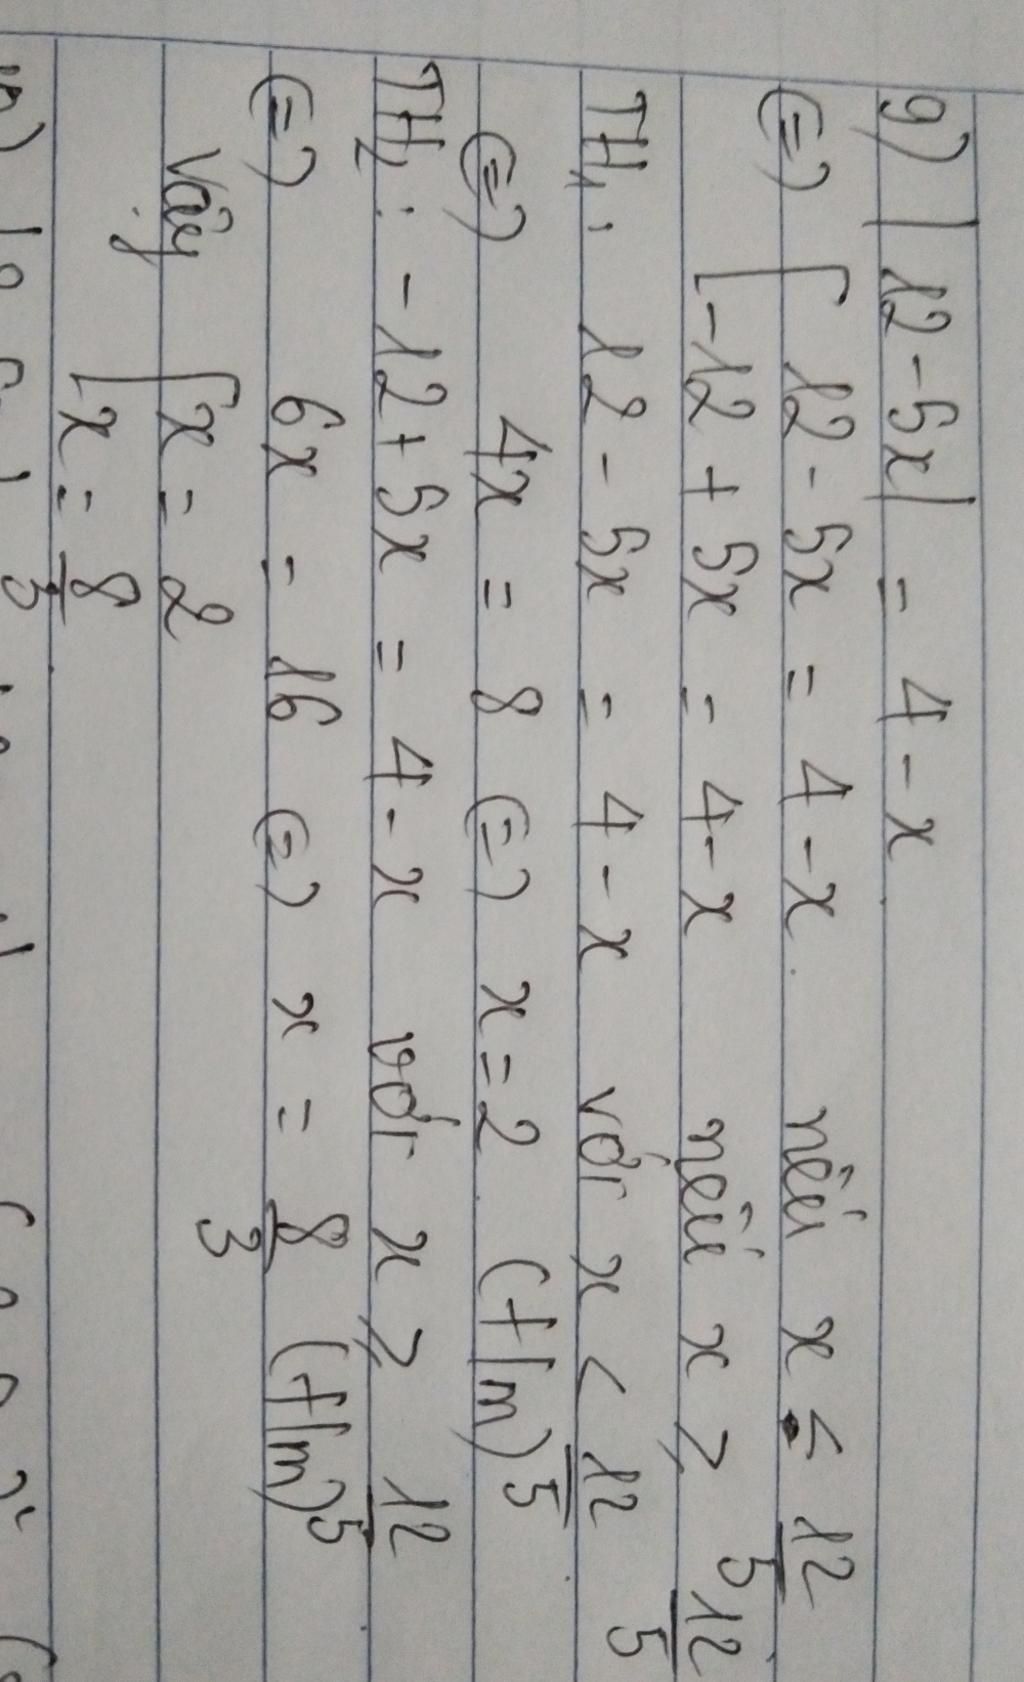 g) |12 - 5x| = 4 - x
(=) [ 12 - 5x = 4 - x nếu x ≤ 12/5
[ -12 + 5x = 4 - x nếu x ≥ 12/5
TH1: 12 - 5x = 4 - x với x < 12/5
(=) 4x = 8 (=) x = 2 (t/m)
TH2: -12 + 5x = 4 - x với x ≥ 12/5
(=) 6x = 16 (=) x = 8/3 (t/m)
Vậy [ x = 2
[ x = 8/3